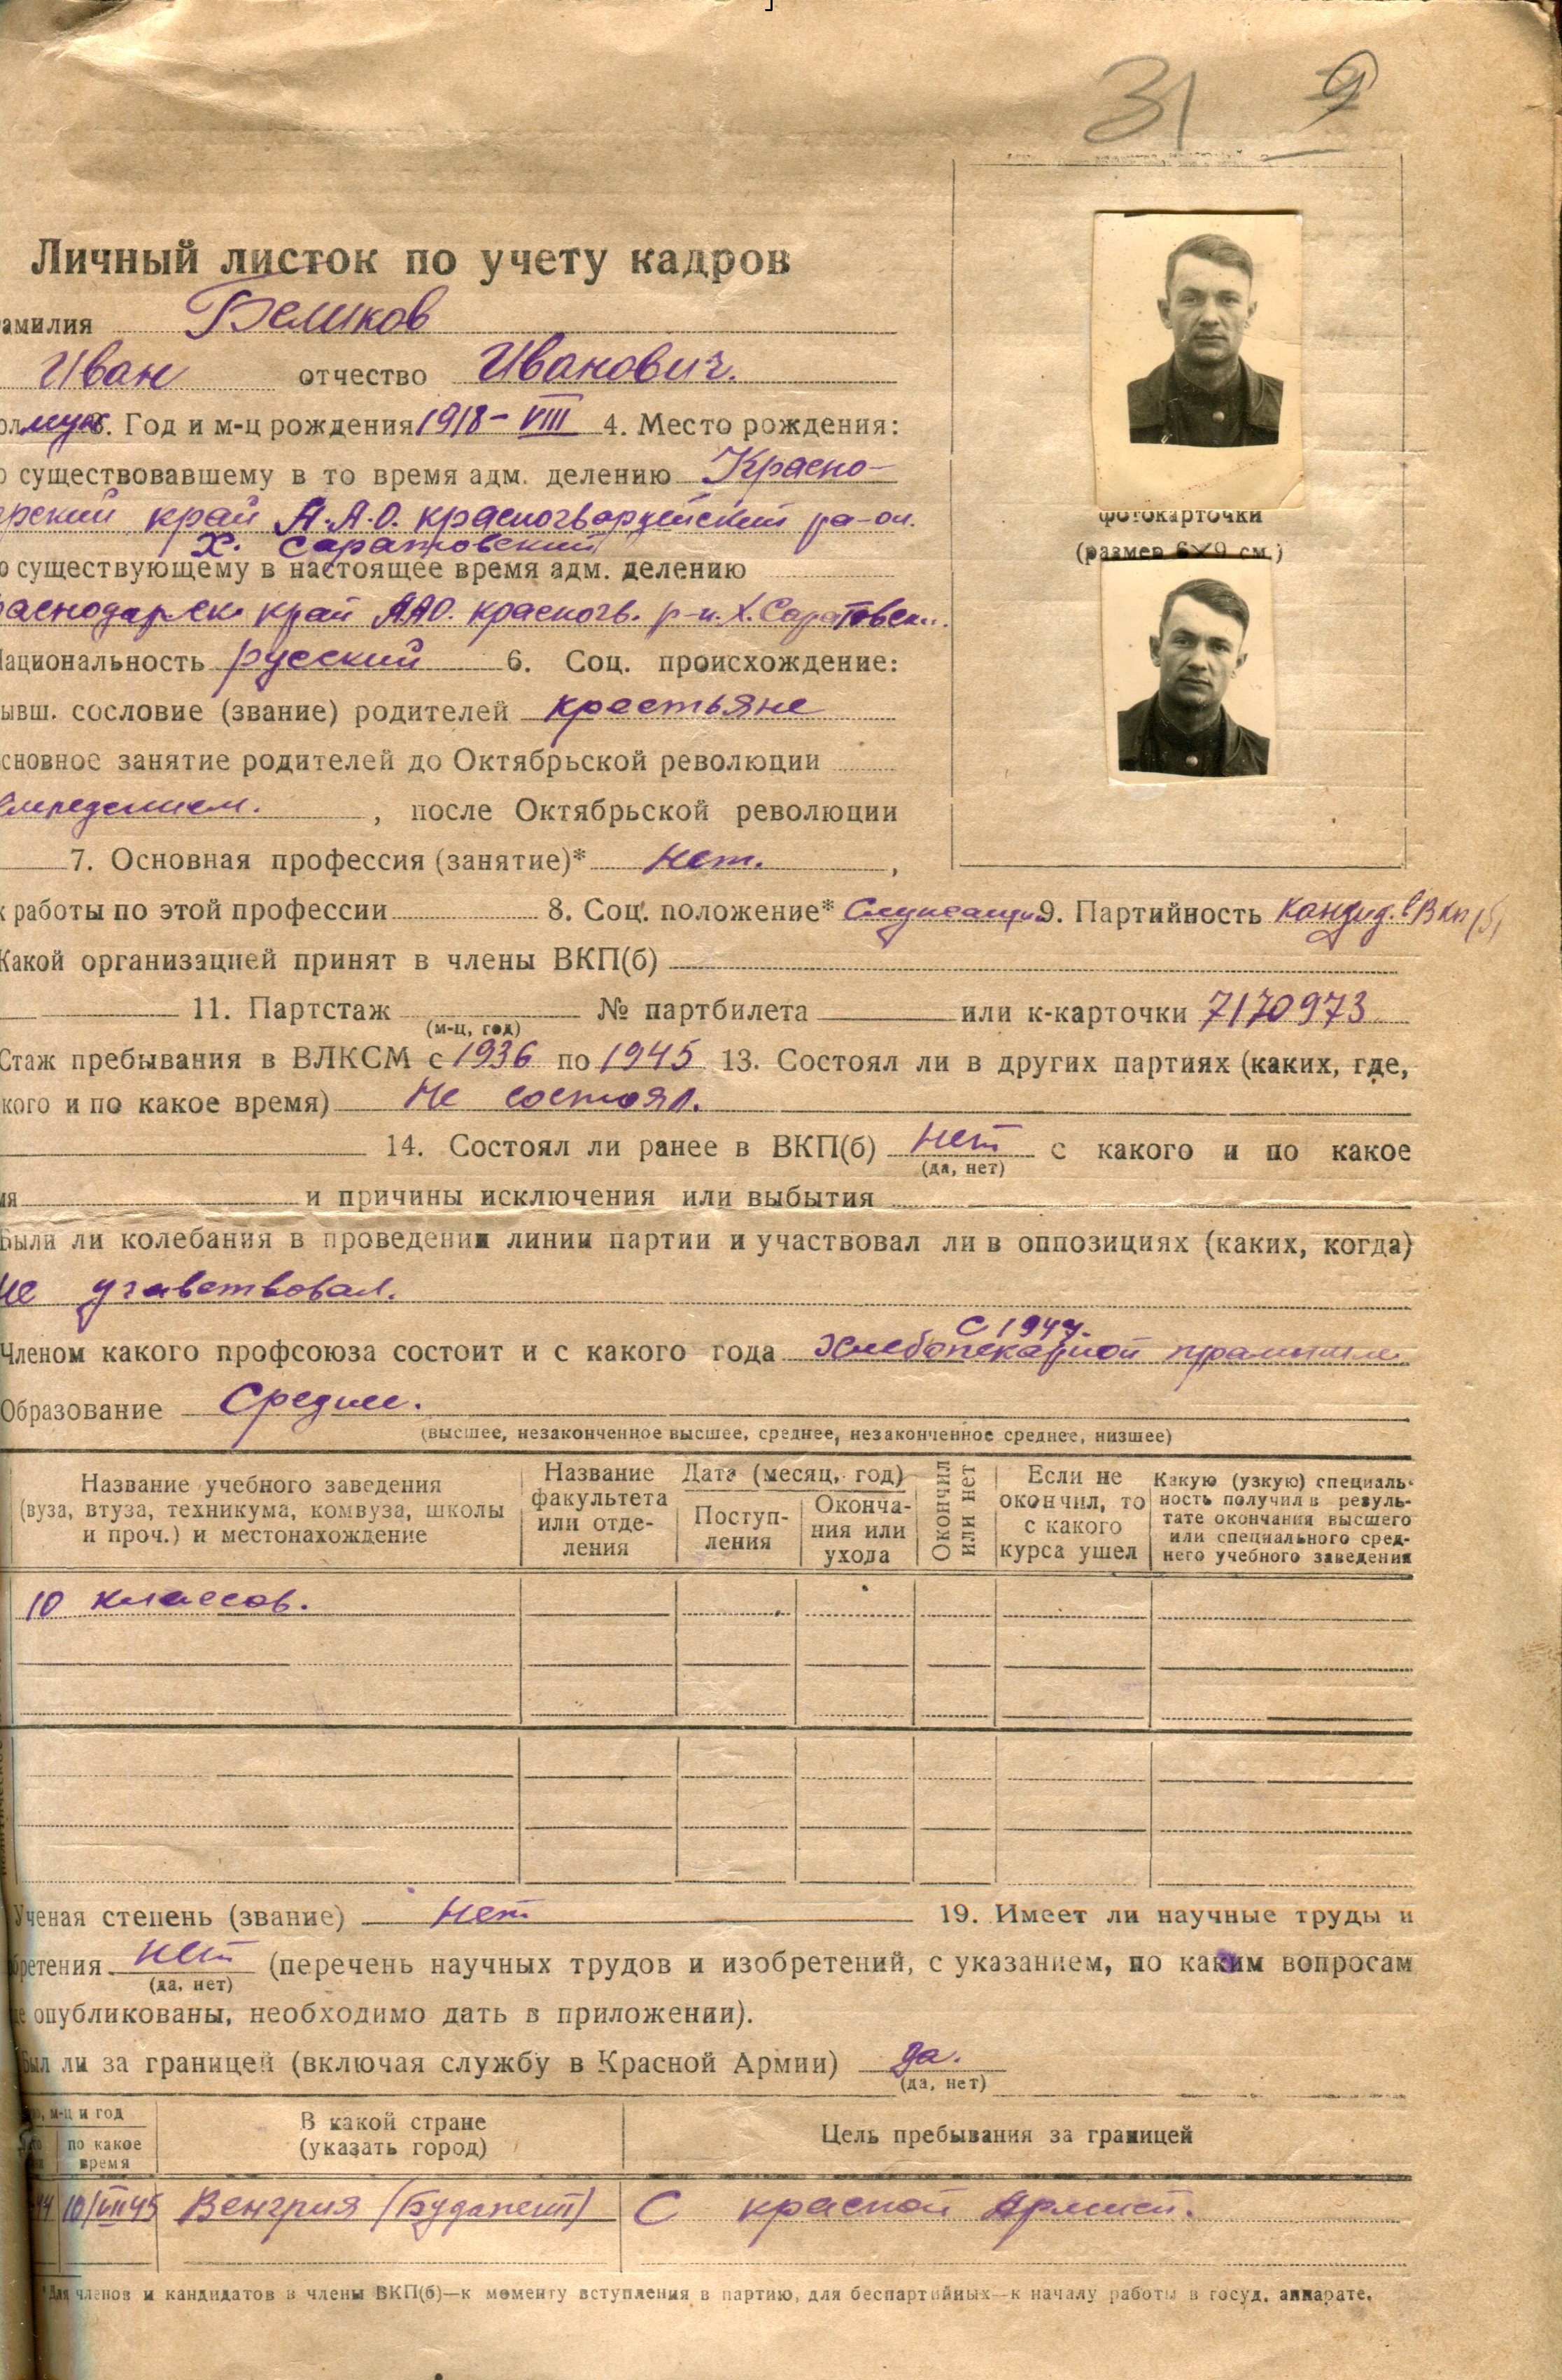 31 9
Личный листок по учету кадров
амилия Беликов
Иван отчество Иванович.
ол муж 3. Год и м-ц рождения 1918 - VIII 4. Место рождения:
о существовавшему в то время адм. делению Красно-
арский край А.А.О. красногвардейский ра-он.
х. Саратовский
о существующему в настоящее время адм. делению
раснодарск край А.А.О. красногв. р-н. х. Саратовск.
Национальность русский 6. Соц. происхождение:
ывш. сословие (звание) родителей крестьяне
сновное занятие родителей до Октябрьской революции
, после Октябрьской революции
7. Основная профессия (занятие)* нет. ,
ж работы по этой профессии 8. Соц. положение* Служащий 9. Партийность кандид. в ВКП(б)
Какой организацией принят в члены ВКП(б)
11. Партстаж № партбилета или к-карточки 7170973
(м-ц, год)
Стаж пребывания в ВЛКСМ с 1936 по 1945 13. Состоял ли в других партиях (каких, где,
кого и по какое время) Не состоял.
14. Состоял ли ранее в ВКП(б) нет с какого и по какое
(да, нет)
мя и причины исключения или выбытия
Были ли колебания в проведении линии партии и участвовал ли в оппозициях (каких, когда)
не участвовал.
с 194
Членом какого профсоюза состоит и с какого года Хлебопекарной
Образование Средне.
(высшее, незаконченное высшее, среднее, незаконченное среднее, низшее)
Название учебного заведения (вуза, втуза, техникума, комвуза, школы и проч.) и местонахождение
Название факультета или отделения
Дата (месяц, год)
Поступ-
ления
Оконча-
ния или
ухода
Окончил
или нет
Если не
окончил, то
с какого
курса ушел
Какую (узкую) специаль-
ность получил в резуль-
тате окончания высшего
или специального сред-
него учебного заведения
10 классов.
Ученая степень (звание) нет 19. Имеет ли научные труды и
бретения нет (перечень научных трудов и изобретений, с указанием, по каким вопросам
(да, нет)
де опубликованы, необходимо дать в приложении).
Был ли за границей (включая службу в Красной Армии) да.
(да, нет)
м-ц и год
по какое
время
В какой стране
(указать город)
Цель пребывания за границей
44 10/VIII 45 Венгрия (Будапешт) С красной Армией.
*Для членов и кандидатов в члены ВКП(б)—к моменту вступления в партию, для беспартийных—к началу работы в госуд. аппарате.
фотокарточки
(размер 6×9 см.)